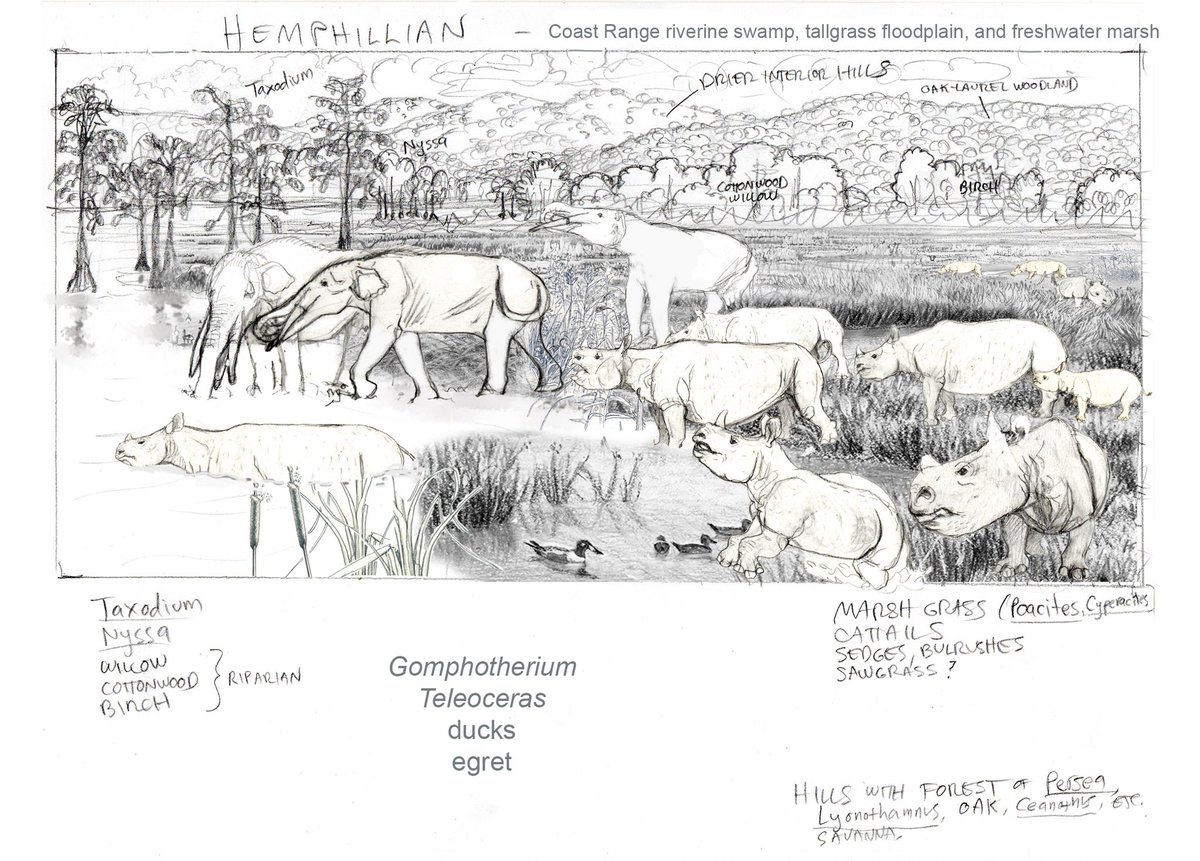 HEMPHILLIAN – Coast Range riverine swamp, tallgrass floodplain, and freshwater marsh
Taxodium
DRIER INTERIOR HILLS
OAK-LAUREL WOODLAND
Nyssa
COTTONWOOD
WILLOW
BIRCH
Taxodium
Nyssa
WILLOW
COTTONWOOD
BIRCH
RIPARIAN
Gomphotherium
Teleoceras
ducks
egret
MARSH GRASS (Poacites, Cyperacites
CATTAILS
SEDGES, BULRUSHES
SAWGRASS?
HILLS WITH FOREST OF Persea,
Lyonothamnus, OAK, Ceanothus, ETC.
SAVANNA.